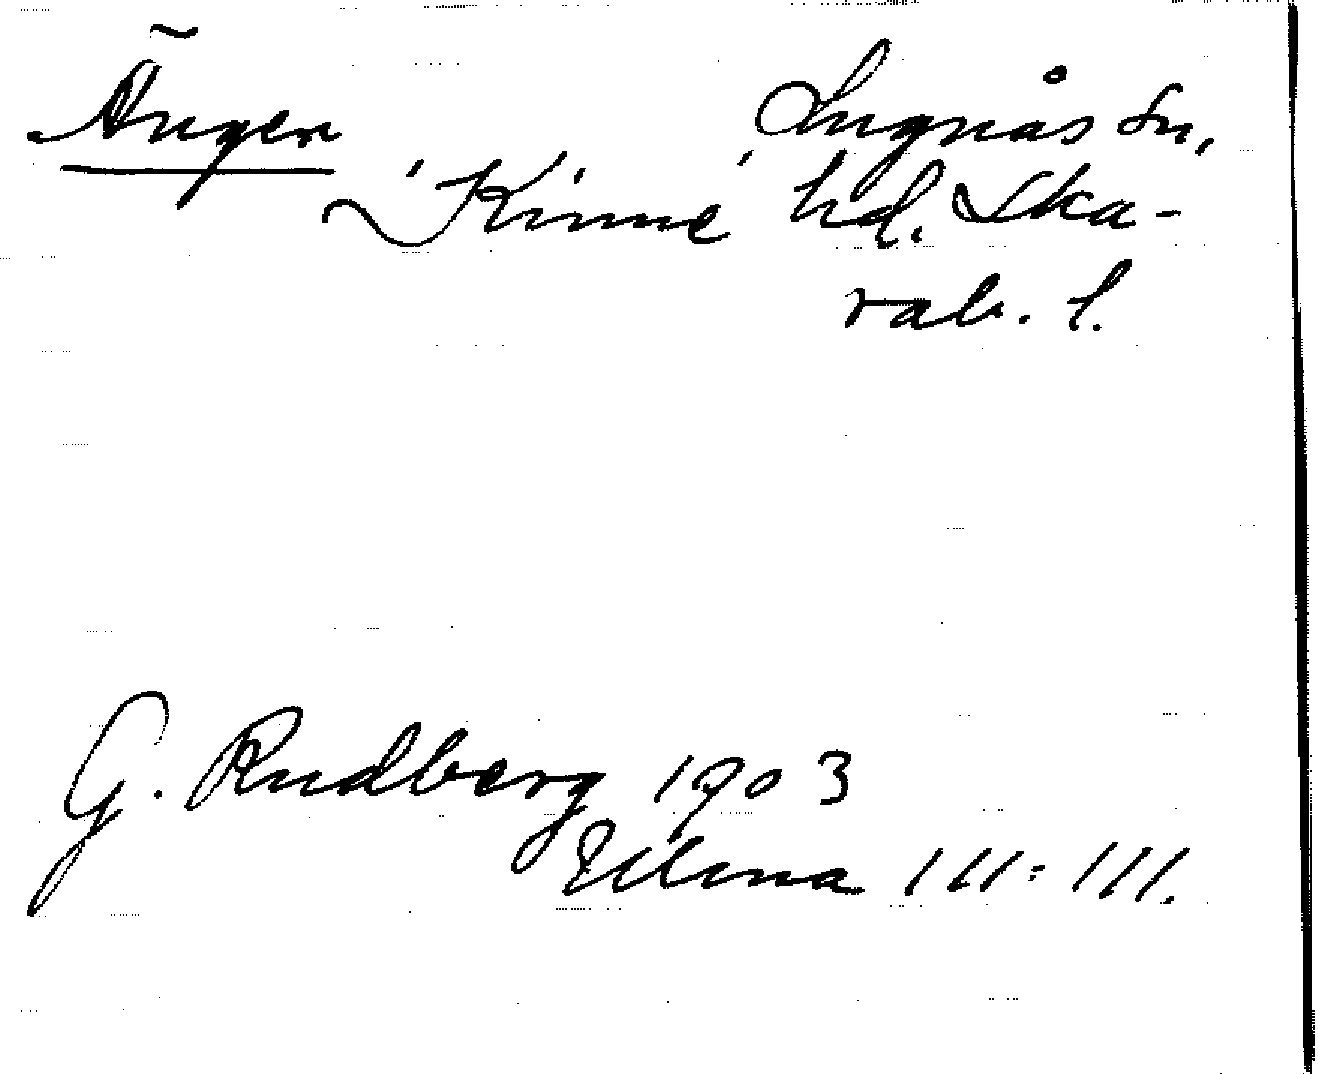 Ängen Lugnås sn,
Kinne hd. Ska-
rab. l.
G. Rudberg 1903
Ellena 111: 111.